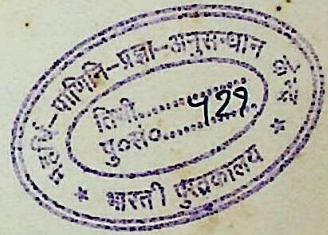 महर्षि-पाणिनि-प्रज्ञा-अनुसन्धान केन्द्र
तिथी..................
पु०सं०............ 421
* भारती पुस्तकालय *